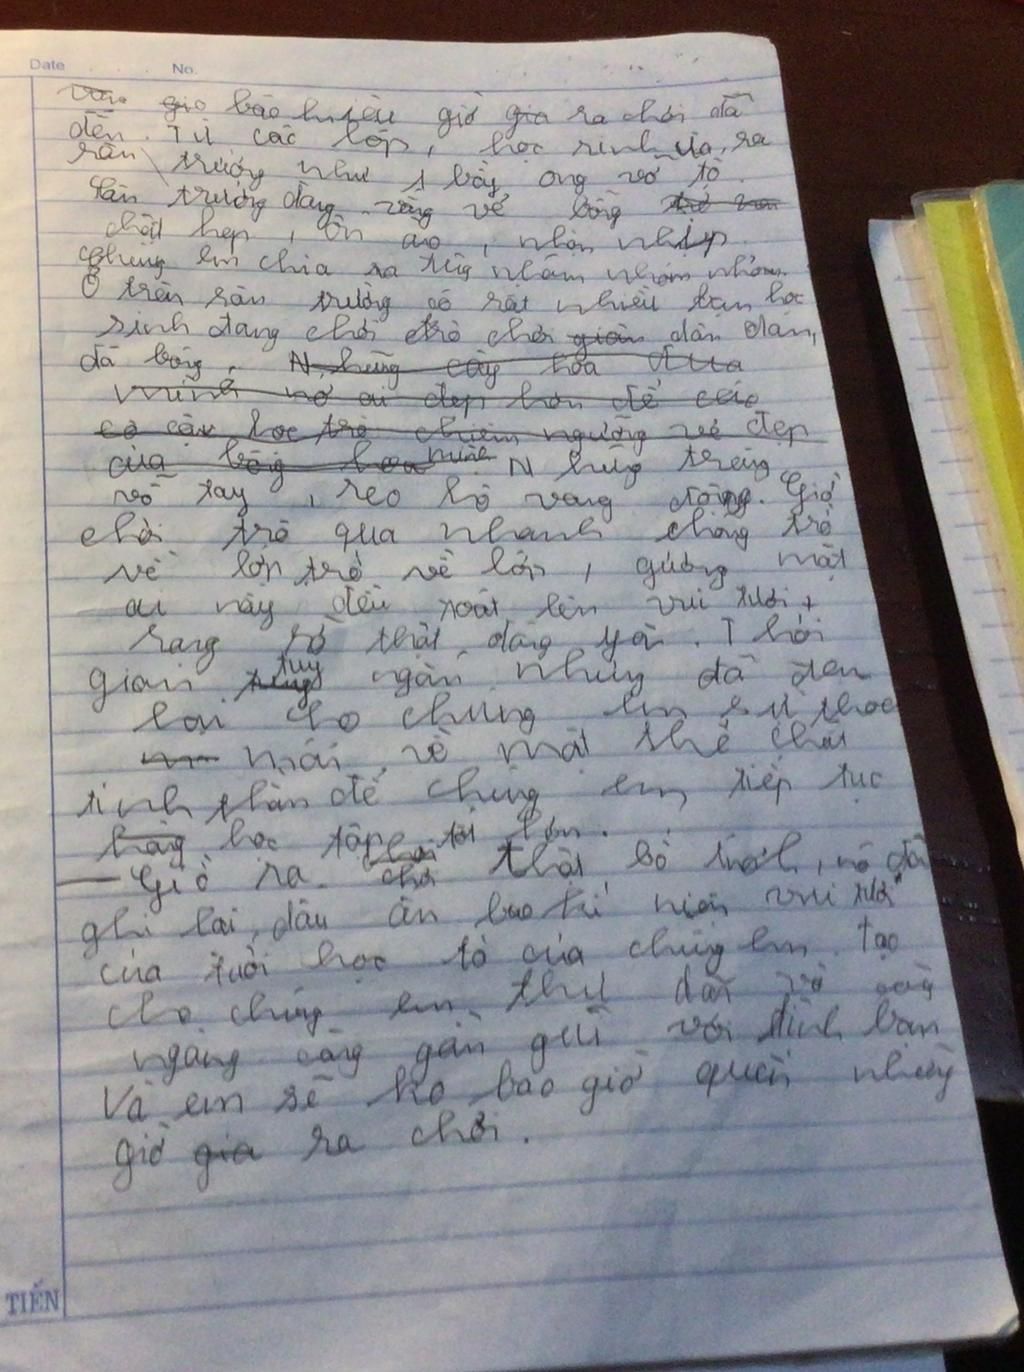 Date No.
báo hiệu giờ ra chơi đã
đến. Từ các lớp, học sinh ùa ra
sân trường như 1 bầy ong vỡ tổ.
Sân trường đang vắng vẻ bỗng
chật hẹp, ồn ào, nhộn nhịp.
Chúng em chia ra từng nhóm nhóm nhóm.
Ở trên sân trường có rất nhiều bạn học
sinh đang chơi trò chơi dân dan,
đá bóng. Những cây hoa đua
mình nở ai đẹp hơn để các
cô cậu học trò chiêm ngưỡng vẻ đẹp
của bông hoa mình Những tràng
vỗ tay, reo hò vang động. Giờ
chơi trô qua nhanh chóng trở
về lớp trở về lớp, gương mặt
ai nấy đều toát lên vui tươi +
rạng rỡ thật đáng yêu. Thời
gian tuy ngắn nhưng đã đem
lại cho chúng em sự thoả
mái về mặt thể chất
tinh thần để chúng em tiếp tục
học tập tốt hơn.
Giờ ra chơi thật bổ ích, nó đã
ghi lại dấu ấn bao kỉ niệm vui tươi
của tuổi học tò của chúng em. Tạo
cho chúng em thư dãn và càng
ngàng càng gần gũi với tình bạn
Và em sẽ ko bao giờ quên những
giờ gia ra chơi.
TIẾN